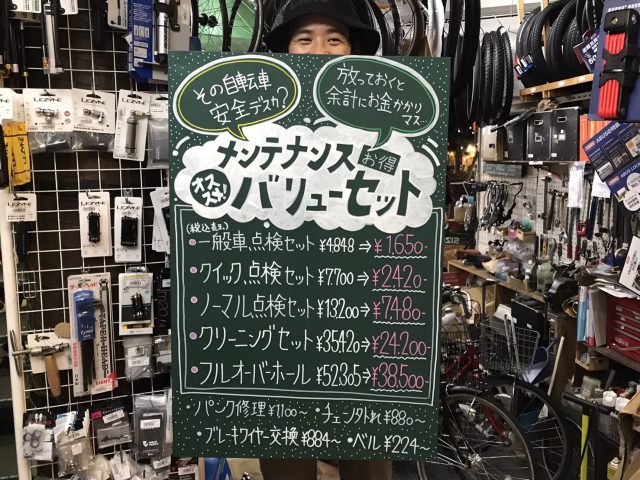 その自転車
安全デスカ?
放っておくと
余計にお金かかり
マス…
メンテナンス お得
オススメ! バリューセット
(税込表示)
・一般車点検セット ¥4.848⇒¥1.650-
・クイック点検セット ¥7.700⇒¥2.420-
・ノーマル点検セット ¥13.200⇒¥7.480-
・クリーニングセット ¥35.420⇒¥24.200-
・フルオーバーホール ¥52.305⇒¥38.500-
・パンク修理 ¥1100~ ・チェーン外れ ¥880~
・ブレーキワイヤー交換 ¥884~ ・ベル ¥224~
LEZYNE
LEZYNE
LEZYNE
LEZYNE